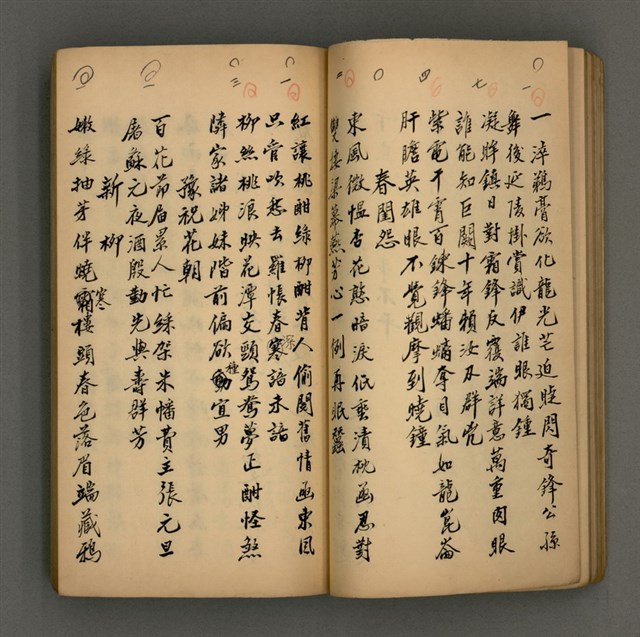 一淬鵜膏欲化龍光芒迫睫閃奇鋒公孫
舞後延陵掛賞識伊誰眼獨鍾
凝眸鎮日對霜鋒反覆端詳意萬重肉眼
誰能知巨闕十年賴汝及群兇
紫電干霄百鍊鋒蟠螭奪目氣如龍崑崙
肝膽英雄眼不覺觀摩到曉鐘
春閨怨
東風微慍杏花愁暗淚低垂漬枕函忍對
雙棲梁幕燕芳心一例再眠蠶
紅讓桃酣綠柳酣背人偷閱舊情函東風
只管吹愁去羅帳春寒語未諳
柳煞桃浪映花潭交頸鴛鴦夢正酣怪煞
隣家諸姊妹階前偏欲種宜男
豫祝花朝
百花節屆眾人忙綵架朱幡費主張元旦
屠蘇元夜酒殷勤先與壽群芳
新柳
嫩綠抽芽伴曉寒樓頭春色落眉端藏鴉
一
一
七
四
二
一
三
一
一